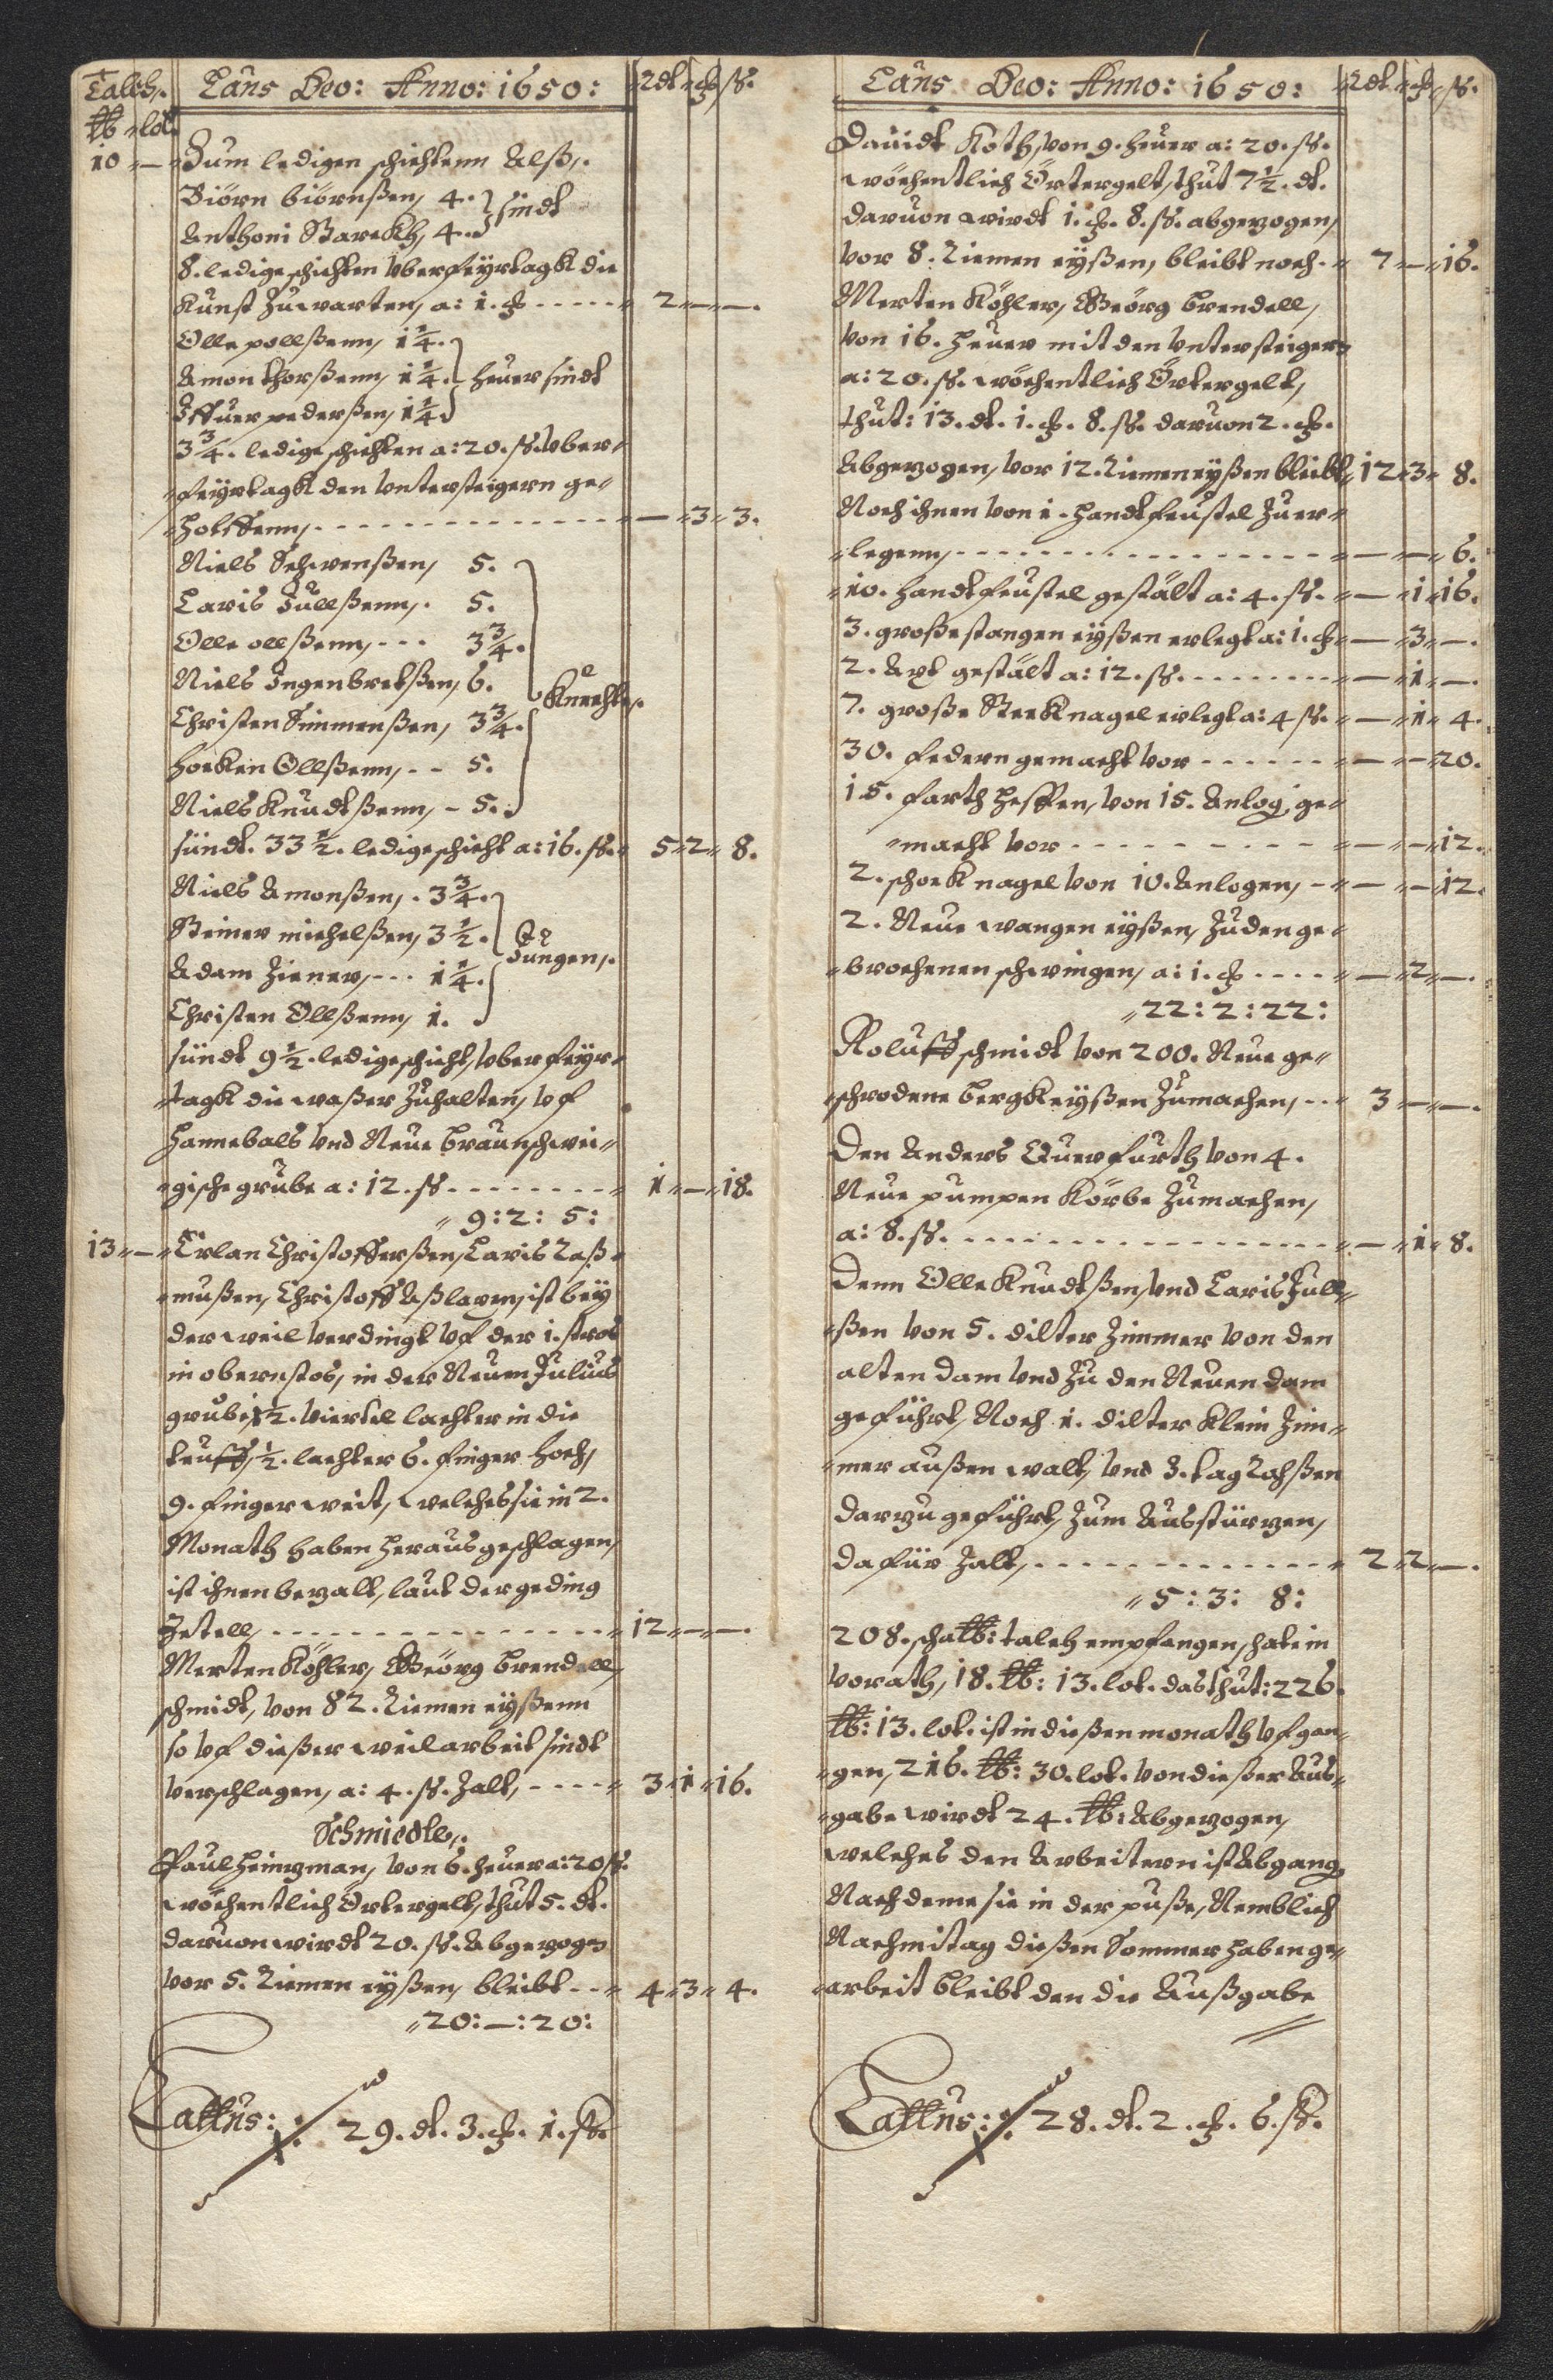 Talch,
℔ lot.
Laus Deo: Anno: 1650:
Rdt ß.
10 — Zum ledigen schichtenn Alß,
Biörn biörnßen, 4. } sindt
Anthoni Starckh, 4.
8. ledige schichten vber feyrtagk die
Kunst Zuwarten, a: 1. - - - - - 2 — —.
Olle pollßenn, 1¼.
Amon thorßenn, 1¼. } heuer sindt
Iffuer pederßen, 1¼
3¾. ledige schichten a: 20. ß. vber
feyrtagk den vntersteigern ge-
holffenn, - - - - - - - — 3 3.
Niels Schwenßen, 5.
Laris Jullßenn, 5.
Olle ollßenn, - - - 3¾.
Niels Ingenbretßen, 6.
Knechte,
Christen Simmenßen, 3¾.
Horken Ollßenn, - - 5.
Niels Knudtßenn, - 5.
sündt. 33½. ledige schicht a: 16. ß. 5 2 8.
Niels Amonßen, 3¾.
Steiner michelßen, 3½.
Jungen,
Adam Ziener, - - - 1¼.
Christen Ollßenn, 1.
sündt 9½. ledige schicht, vber feyr-
tagk die waßer Zuhalten, vf
Hannebals vnd Neue braunschwei-
gische grube a: 12. ß. - - - - - - 1 — 18.
9: 2: 5:
13 — Erlan Christofferßen, Laris Raß-
mußen, Christoff Aßlaren, ist bey
der weil verdingt vf der 1. stros
in obernstos, in der Neuen Julius
grube, 1½. viertel lachter in die
teuff, ½. lachter 6. finger hoch,
9. finger weit, welches sie in 2.
Monath haben heraus geschlagen,
ist ihnen bezalt, laut der geding
Zetell, - - - - - - - - 12 — —.
Merten Köhler, Geörg brendell,
schmidt, von 82. Riemen eyßenn
so vf dießer weilarbeit sindt
verschlagen, a: 4. ß. Zalt, - - - - 3 1 16.
Schmiedte,
Paul heinzman, von 6. heuer a: 20 ß.
wöchentlich Örtergelt, thut 5. dt.
daruon wirdt 20. ß. Abgezogen
vor 5. Riemen eyßen, bleibt - - 4 3 4.
20: —: 20:
Lattus: 29. dt. 3. 1. ß.
Laus Deo: Anno: 1650:
Rdt ß.
Dauidt Koth, von 9. heuer a: 20. ß.
wöchentlich Örtergelt, thut 7½. dt.
daruon wirdt 1. 8. ß. abgezogen,
vor 8. Riemen eyßen, bleibt noch - 7 — 16.
Merten Köhler, Geörg brendell,
von 16. heuer mit den vntersteigern
a: 20. ß. wöchentlich Örtergelt,
thut: 13. dt. 1. 8. ß. daruon 2.
Abgezogen, vor 12. Riemen eyßen bleibt 12 3 8.
Noch ihnen von 1. handtfeustel Zuer-
legenn, - - - - - - - - — — 6.
10. handtfeustel gestält a: 4. ß. — 1 16.
3. große stangen eyßen erlegt a: 1. — 3 —.
2. Axt gestält a: 12. ß. - - - - - - — 1 —.
7. große Stecknagel erlegt a: 4 ß. — 1 4.
30. federn gemacht vor - - - - - - — — 20.
15. farth hesspen, von 15. Anlog, ge-
macht vor - - - - - - - - — — 12.
2. schocknagel von 10. Anlogen, - — — 12.
2. Neue wangen eyßen, Zu den ge-
brochenen schwingen, a: 1. - - - - — 2 —.
22: 2: 22:
Roluff schmidt von 200. Neue ge-
schrodene bergkeyßen Zumachen, - - 3 — —.
Den Anders Querfurth von 4.
Neue pumpen Körbe Zumachen,
a: 8. ß. - - - - - - - - - — 1 8.
Denn Olle Knudtßen, vnd Laris Jull-
ßen von 5. dilter Zimmer von den
alten dam vnd Zu den Neuen dam
geführt, Noch 1. dilter klein Zim-
mer außen walt, vnd 3. tag Rahßen
darzu geführt, Zum Ausstürzen,
dafür Zalt, - - - - - - - - 2 2 —.
5: 3: 8:
208. scha ℔: talch empfangen, hate in
vorath, 18. ℔: 13. lot. das thut: 226.
℔: 13. lot. ist in dießen monath vfgan-
gen, 216. ℔: 30. lot. von dießer Aus-
gabe wirdt 24. ℔: Abgezogen,
welches den Arbeitern ist Abgang,
Nach deme sie in der puße, Nemblich
Nachmitag dießen Sommer haben ge-
arbeit bleibt den die Außgabe
Lattus: 28. dt. 2. 6. ß.